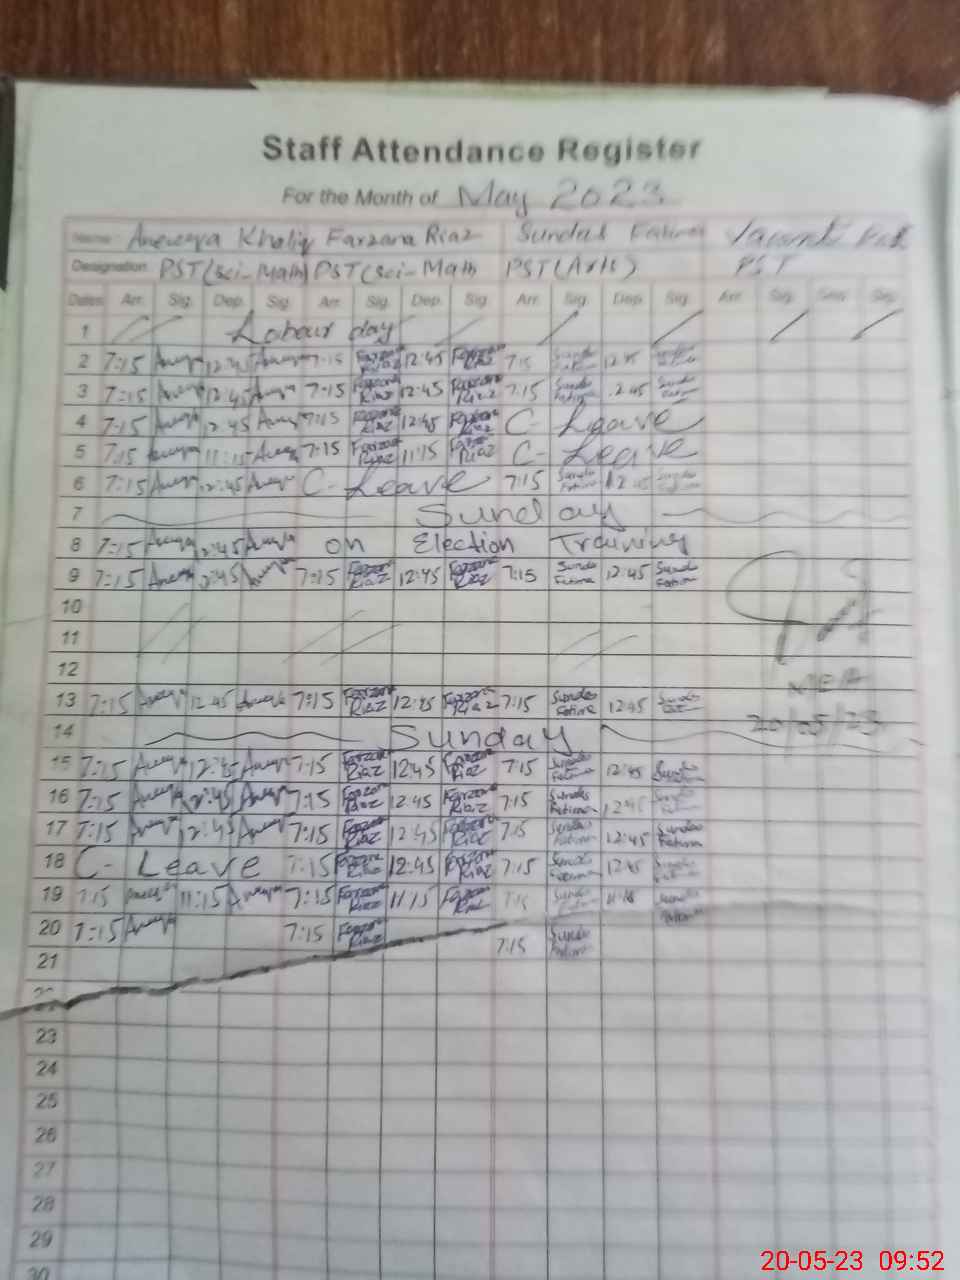 Staff Attendance Register
For the Month of May 2023
Name: Khaliq Farzana Riaz Sundas Fatima
Designation: PST(Sci-Math) PST(Sci-Math PST(Arts) PST
Dates Arr. Sig. Dep. Sig. Arr. Sig. Dep. Sig. Arr. Sig. Dep. Sig. Arr. Sig. Dep. Sig.
1 Labour day
2 7:15 12:45 7:15 Farzana Riaz 12:45 Farzana Riaz 7:15 Sundas Fatima 12:45 Sundas Fatima
3 7:15 12:45 7:15 Farzana Riaz 12:45 Farzana Riaz 7:15 Sundas Fatima 12:45 Sundas
4 7:15 12:45 7:15 Farzana Riaz 12:45 Farzana Riaz C- Leave
5 7:15 11:15 7:15 Farzana Riaz 11:15 Farzana Riaz C- Leave
6 7:15 12:45 C- Leave 7:15 Sundas Fatima 12:45 Sundas Fatima
7 Sunday
8 7:15 12:45 on Election Training
9 7:15 12:45 7:15 Farzana Riaz 12:45 Farzana Riaz 7:15 Sundas Fatima 12:45 Sundas Fatima
10
11
12
13 7:15 12:45 7:15 Farzana Riaz 12:45 Farzana Riaz 7:15 Sundas Fatima 12:45 Sundas
20/05/23
14 Sunday
15 7:15 12:45 7:15 Farzana Riaz 12:45 Farzana Riaz 7:15 Sundas Fatima 12:45 Sundas Fatima
16 7:15 12:45 7:15 Farzana Riaz 12:45 Farzana Riaz 7:15 Sundas Fatima 12:45 Sundas
17 7:15 12:45 7:15 Farzana Riaz 12:45 Farzana Riaz 7:15 Sundas Fatima 12:45 Sundas Fatima
18 C- Leave 7:15 Farzana Riaz 12:45 Farzana Riaz 7:15 Sundas Fatima 12:45 Sundas Fatima
19 7:15 11:15 7:15 Farzana Riaz 11:15 Farzana Riaz 7:15 Sundas Fatima 11:15 Sundas Fatima
20 7:15 7:15 Farzana Riaz 7:15 Sundas Fatima
21
23
24
25
26
27
28
29
30
20-05-23 09:52